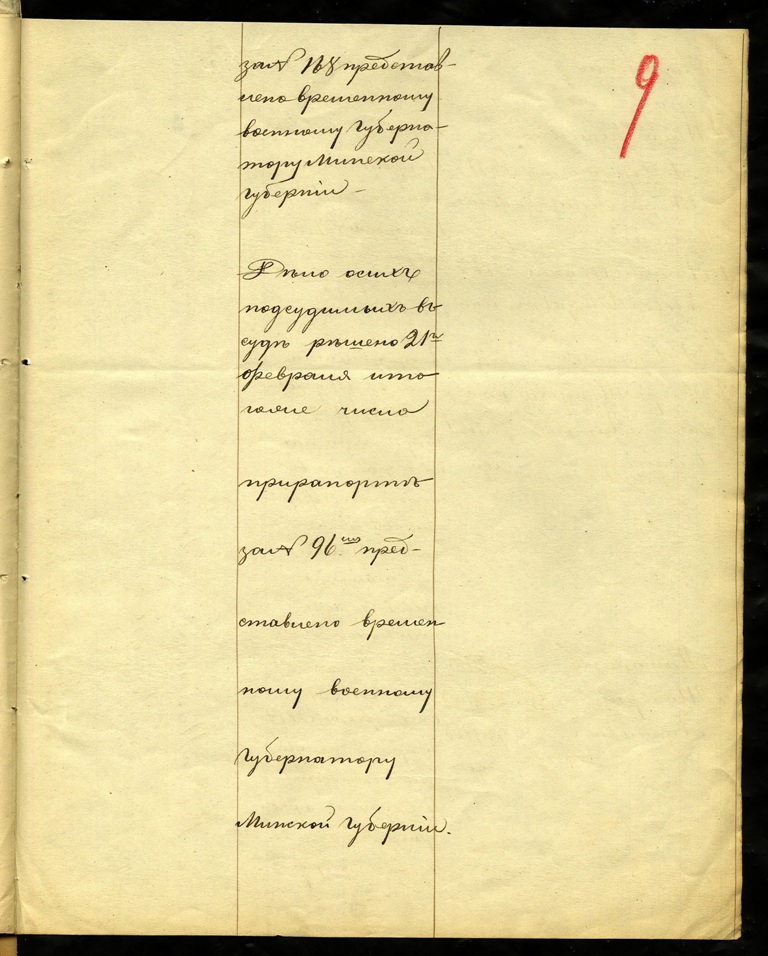 9
за № 168 представ-
лено временному
военному губерна-
тору Минской
губернiи –
Дѣло о сихъ
подсудимыхъ въ
судѣ рѣшено 21го
февраля и то-
гоже числа
при рапортѣ
за № 96мъ пред-
ставлено времен
ному военному
губернатору
Минской губернiи.